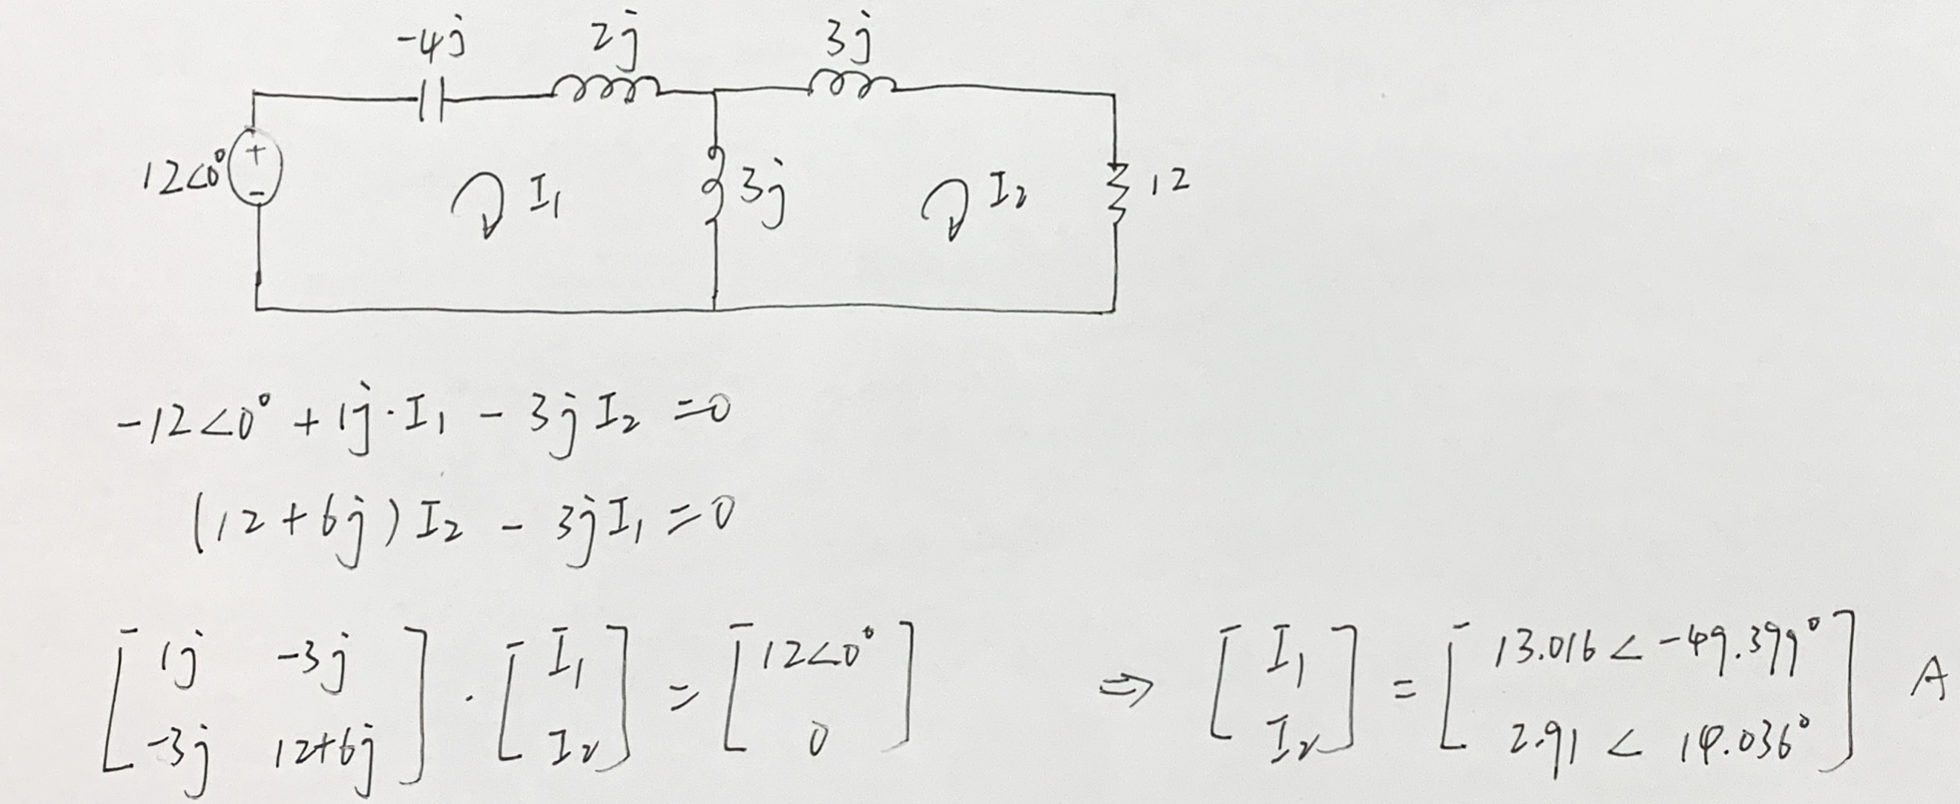 -4j 2j 3j
12<0° + - I₁ 3j I₂ 12
-12<0° + 1j·I₁ - 3jI₂ =0
(12+6j)I₂ - 3jI₁ =0
[1j -3j; -3j 12+6j] · [I₁; I₂] = [12<0°; 0] ⇒ [I₁; I₂] = [13.016 < -49.399°; 2.91 < 14.036°] A